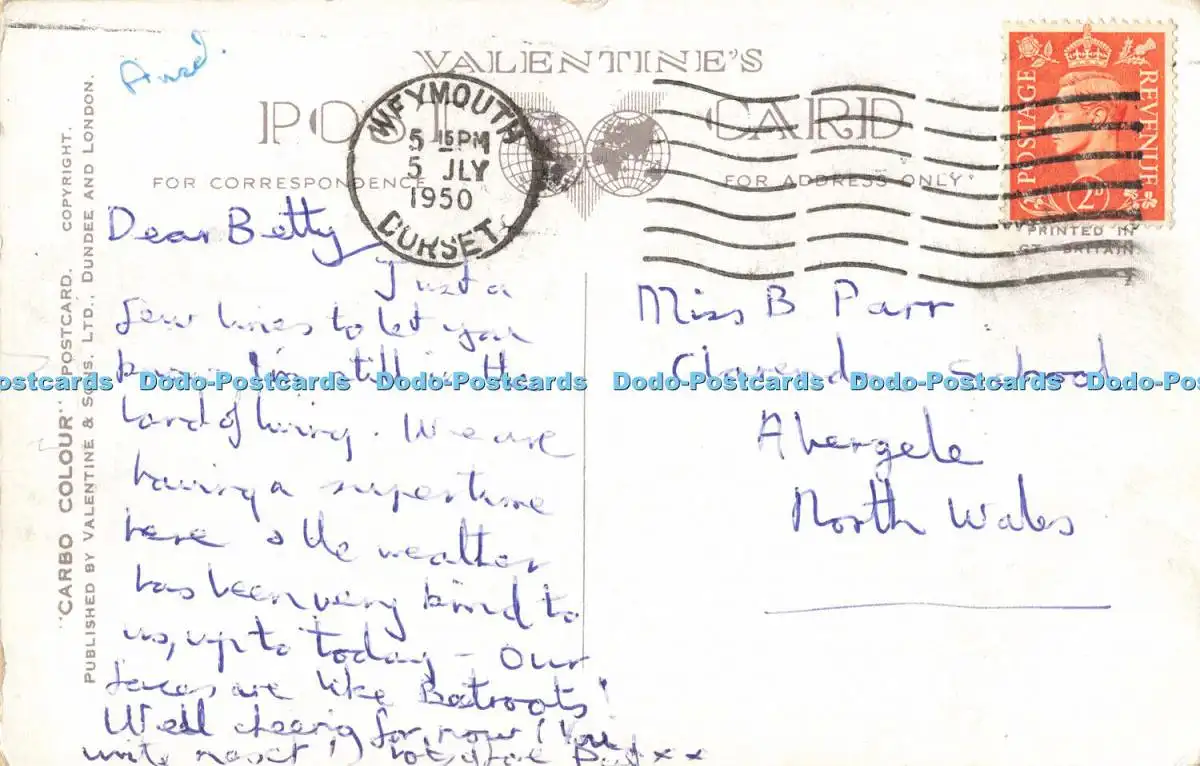 Ansd.
VALENTINE'S
POST CARD
FOR CORRESPONDENCE
FOR ADDRESS ONLY
WEYMOUTH
5 15 PM
5 JLY
1950
DORSET
POSTAGE
REVENUE
2D
PRINTED IN
GT. BRITAIN
"CARBO COLOUR" POSTCARD. COPYRIGHT.
PUBLISHED BY VALENTINE & SONS. LTD., DUNDEE AND LONDON.
Dear Betty
Just a
few lines to let you
know I'm still in the
land of living. We are
having a super time
here & the weather
has been very kind to
us, up to today - Our
faces are like Beetroots!
Well cheerio for now! (You
write next!) lots of love
x x
Miss B Parr
School
Abergele
North Wales
Dodo-Postcards Dodo-Postcards Dodo-Postcards Dodo-Postcards Dodo-Postcards